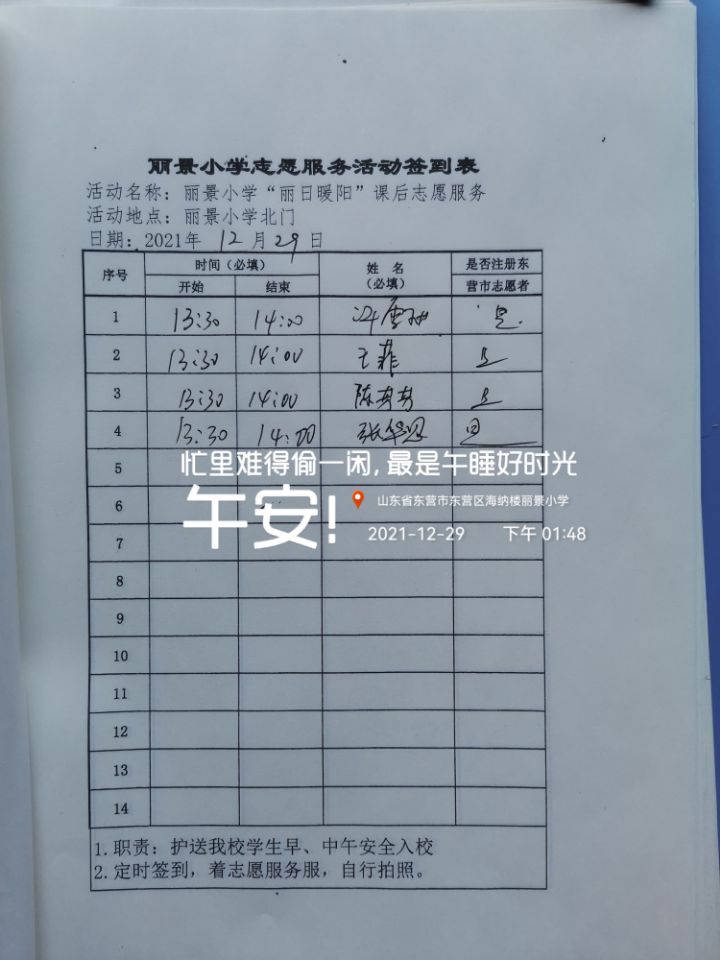 丽景小学志愿服务活动签到表
活动名称：丽景小学“丽日暖阳”课后志愿服务
活动地点：丽景小学北门
日期：2021年 12 月 29 日
序号 时间（必填） 姓 名（必填） 是否注册东营市志愿者
开始 结束
1 13:30 14:00 是
2 13:30 14:00 王菲 是
3 13:30 14:00 陈芳芳 是
4 13:30 14:00 是
5
忙里难得偷一闲，最是午睡好时光
6
午安！
山东省东营市东营区海纳楼丽景小学
2021-12-29 下午 01:48
7
8
9
10
11
12
13
14
1.职责：护送我校学生早、中午安全入校
2.定时签到，着志愿服务服，自行拍照。